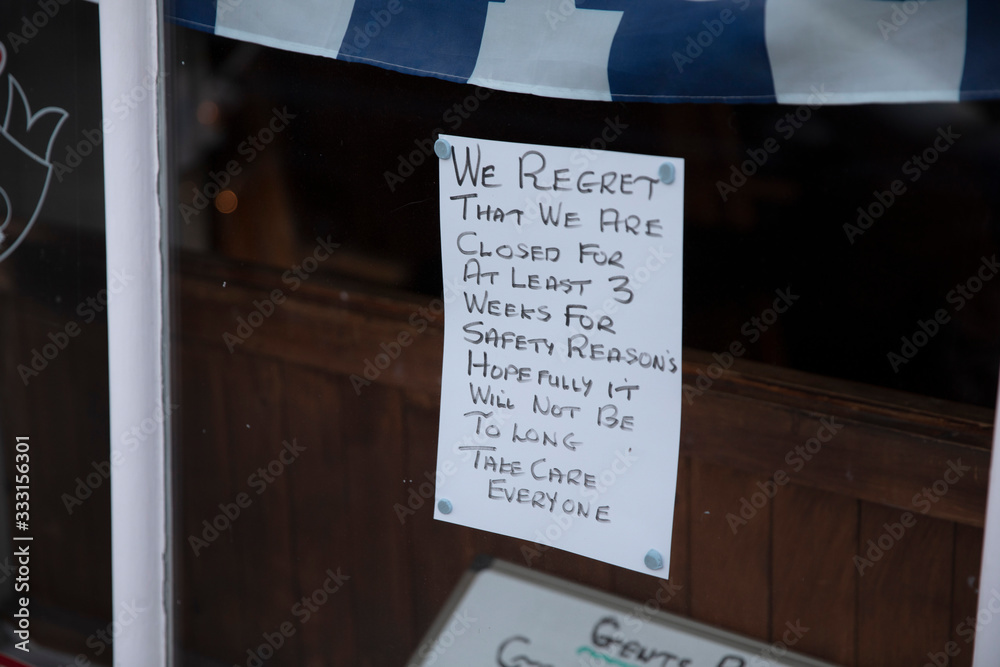 WE REGRET
THAT WE ARE
CLOSED FOR
AT LEAST 3
WEEKS FOR
SAFETY REASON'S
HOPEFULLY IT
WILL NOT BE
TO LONG.
TAKE CARE
EVERYONE
GENTS
Adobe Stock | #333156301